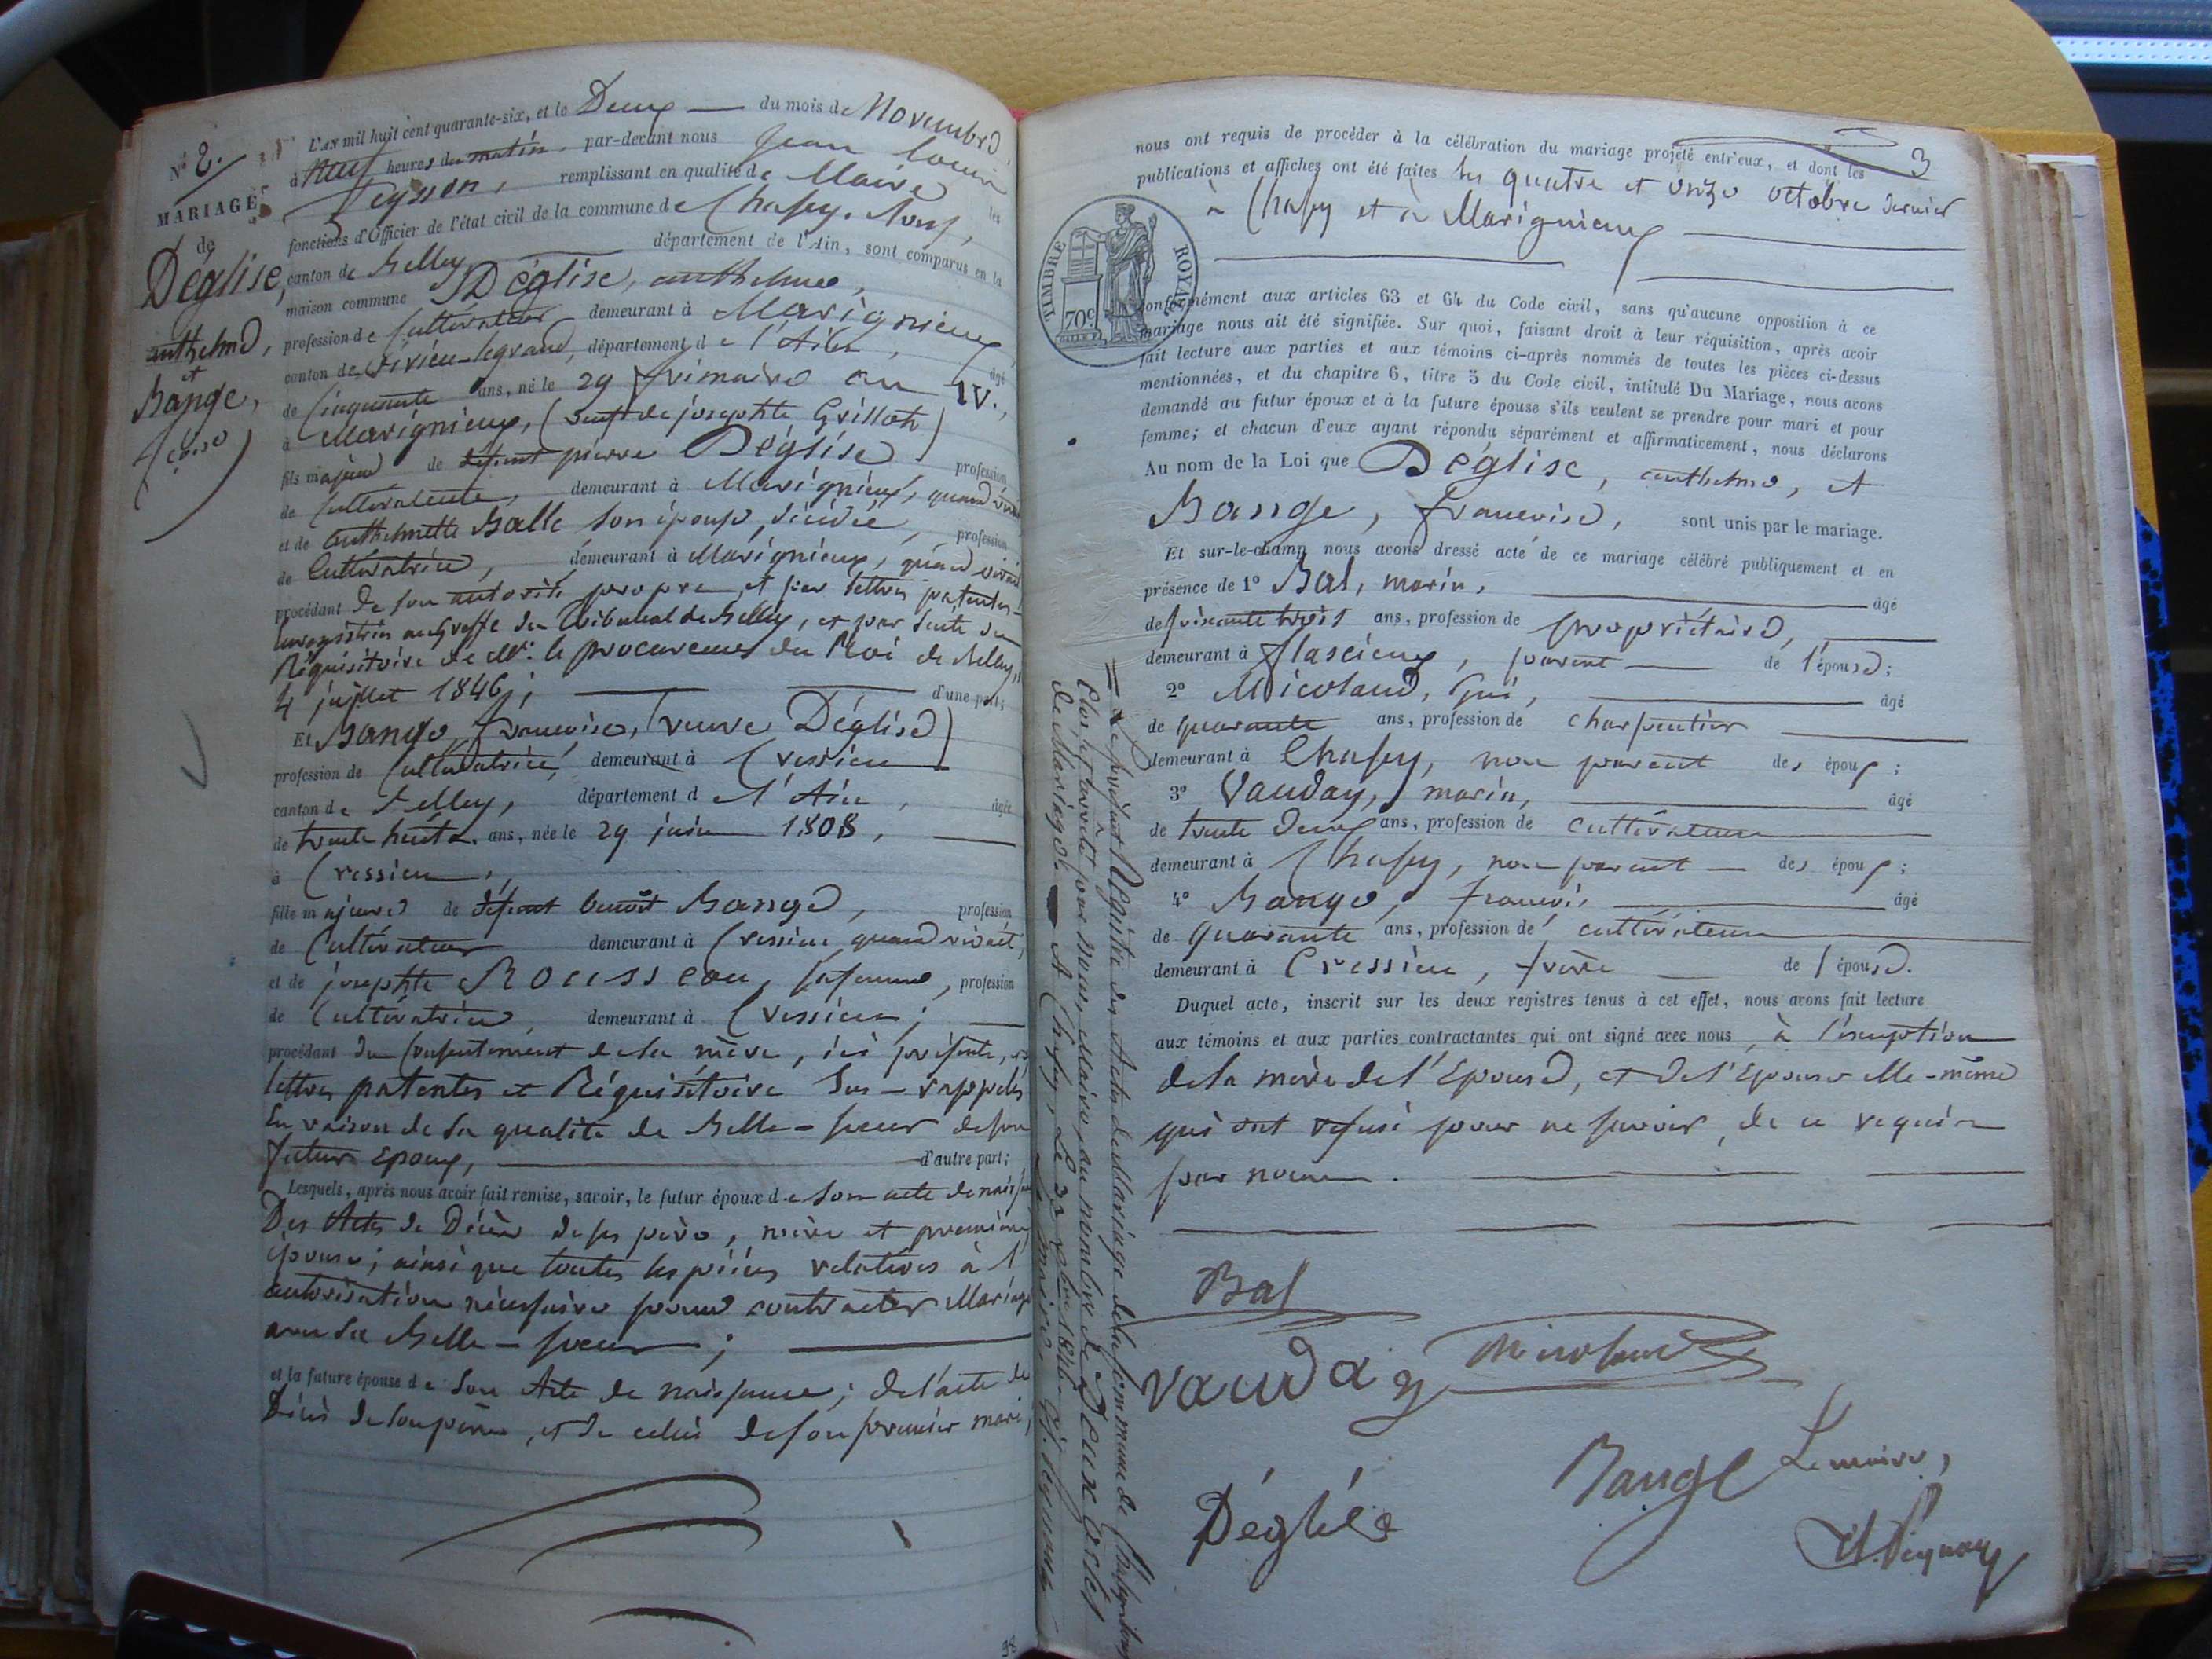 N° 2.
MARIAGE
de
Déglise,
anthelme,
et
Bange,
L'AN mil huit cent quarante-six, et le Deux du mois de Novembre,
à neuf heures du matin par-devant nous Jean Louis
Peysson, remplissant en qualité de Maire les
fonctions d'Officier de l'état civil de la commune de
canton de Belley département de l'Ain, sont comparus en la
maison commune Déglise, anthelme,
profession de Cultivateur demeurant à Marignieux,
canton de Virieu-le-grand, département de l'Ain, âgé
de Cinquante ans, né le 29 frimaire an IV.,
à Marignieux, (veuf de josephte Grillot)
fils majeur de défunt pierre Déglise profession
de Cultivateur, demeurant à Marignieux, quand vivait
et de anthelmette Balle son épouse, décédée, profession
de Cultivatrice, demeurant à Marignieux, quand vivait
procédant de son autorité propre, et par lettres patentes
Enregistrées au Greffe du Tribunal de Belley, et par suite du
Réquisitoire de Mr. le procureur du Roi de Belley,
4 juillet 1846; d'une part;
Et Bange, françoise, (veuve Déglise)
profession de Cultivatrice, demeurant à Cressieu
canton de Belley, département de l'Ain, âgée
de trente huit ans, née le 29 juin 1808,
à Cressieu,
fille majeure de défunt benoît Bange, profession
de Cultivateur demeurant à Cressieu quand vivait,
et de josephte Rousseau, sa femme, profession
de Cultivatrice, demeurant à Cressieu;
procédant du Consentement de sa mère, ici présente, et
lettres patentes et Réquisitoire sus-rappelés
En raison de sa qualité de Belle-sœur de son
futur Epoux, d'autre part;
Lesquels, après nous avoir fait remise, savoir, le futur époux de son acte de naissance
Des Actes de Décès de ses père, mère et première
épouse; ainsi que toutes les pièces relatives à l'
autorisation nécessaire pour contracter Mariage
avec sa Belle-sœur;
et la future épouse de son Acte de naissance; de l'acte de
Décès de son père, et de celui de son premier mari,
98
3
nous ont requis de procéder à la célébration du mariage projeté entr'eux, et dont les
publications et affiches ont été faites les quatre et onze octobre dernier
à Chazey et à Marignieux
TIMBRE ROYAL
70c
conformément aux articles 63 et 64 du Code civil, sans qu'aucune opposition à ce
mariage nous ait été signifiée. Sur quoi, faisant droit à leur réquisition, après avoir
fait lecture aux parties et aux témoins ci-après nommés de toutes les pièces ci-dessus
mentionnées, et du chapitre 6, titre 5 du Code civil, intitulé Du Mariage, nous avons
demandé au futur époux et à la future épouse s'ils veulent se prendre pour mari et pour
femme; et chacun d'eux ayant répondu séparément et affirmativement, nous déclarons
Au nom de la Loi que Déglise, anthelme, et
Bange, françoise, sont unis par le mariage.
Et sur-le-champ nous avons dressé acte de ce mariage célébré publiquement et en
présence de 1° Bal, marin, âgé
de soixante trois ans, profession de propriétaire,
demeurant à flaxieux, parent de l'épouse;
2° Micolaud, Gui, âgé
de quarante ans, profession de charpentier
demeurant à Chazey, non parent des époux;
3° Vauday, marin, âgé
de trente deux ans, profession de cultivateur
demeurant à Chazey, non parent des époux;
4° Bange, françois âgé
de quarante ans, profession de cultivateur
demeurant à Cressieu, frère de l'épouse.
Duquel acte, inscrit sur les deux registres tenus à cet effet, nous avons fait lecture
aux témoins et aux parties contractantes qui ont signé avec nous, à l'exception
de la mère de l'Epouse, et de l'Epouse elle-même
qui ont refusé pour ne savoir, de ce requise
par nous.
Bal
Vauday
Micolaud
Déglise
Bange
Le maire,
Le présent Registre des Actes de Mariage de la Commune de
Clos et arrêté par nous, Maire, au nombre de Deux Actes
de Mariage. A Chazey, Le